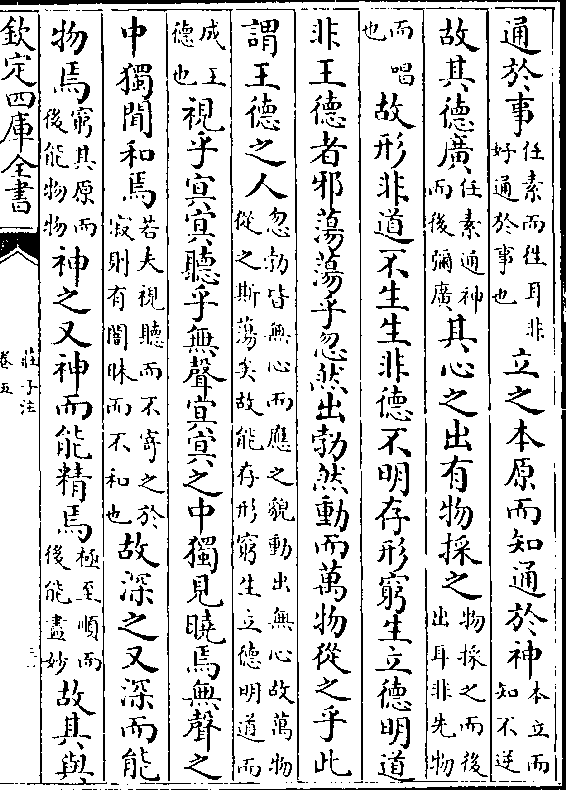 通於事任素而徃耳非好通於事也立之本原而知通於神本立而知不逆
故其德廣任素通神而後彌廣其心之出有物採之物採之而後出耳非先物
而唱也故形非道不生生非德不明存形窮生立德明道
非王德者邪蕩蕩乎忽然出勃然動而萬物從之乎此
謂王德之人忽勃皆無心而應之貌動出無心故萬物從之斯蕩矣故能存形窮生立德明道而
成王德也視乎冥冥聽乎無聲冥冥之中獨見曉焉無聲之
中獨聞和焉若夫視聽而不寄之於寂則有闇昧而不和也故深之又深而能
物焉窮其原而後能物物神之又神而能精焉極至順而後能盡妙故其與
欽定四庫全書
莊子注
卷五
三